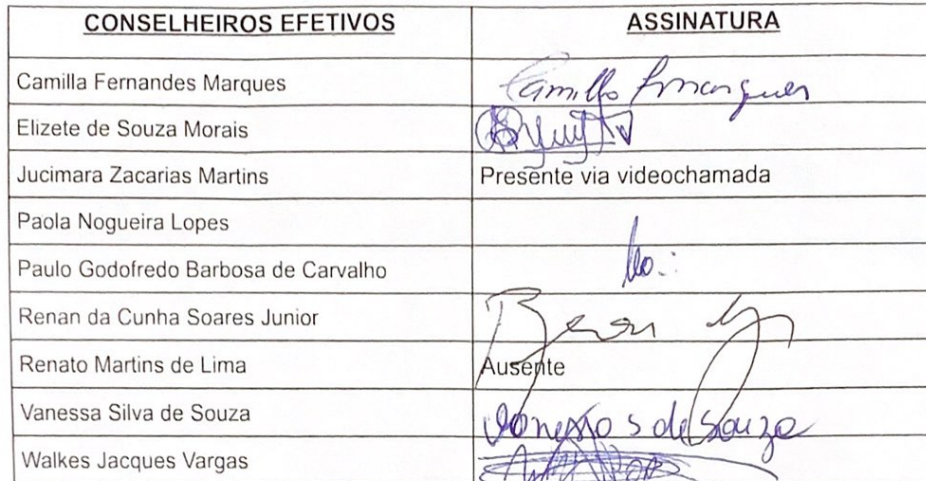 CONSELHEIROS EFETIVOS ASSINATURA
Camilla Fernandes Marques Camilla Fmarques
Elizete de Souza Morais
Jucimara Zacarias Martins Presente via videochamada
Paola Nogueira Lopes
Paulo Godofredo Barbosa de Carvalho
Renan da Cunha Soares Junior
Renato Martins de Lima Ausente
Vanessa Silva de Souza Vanessa S de Souza
Walkes Jacques Vargas